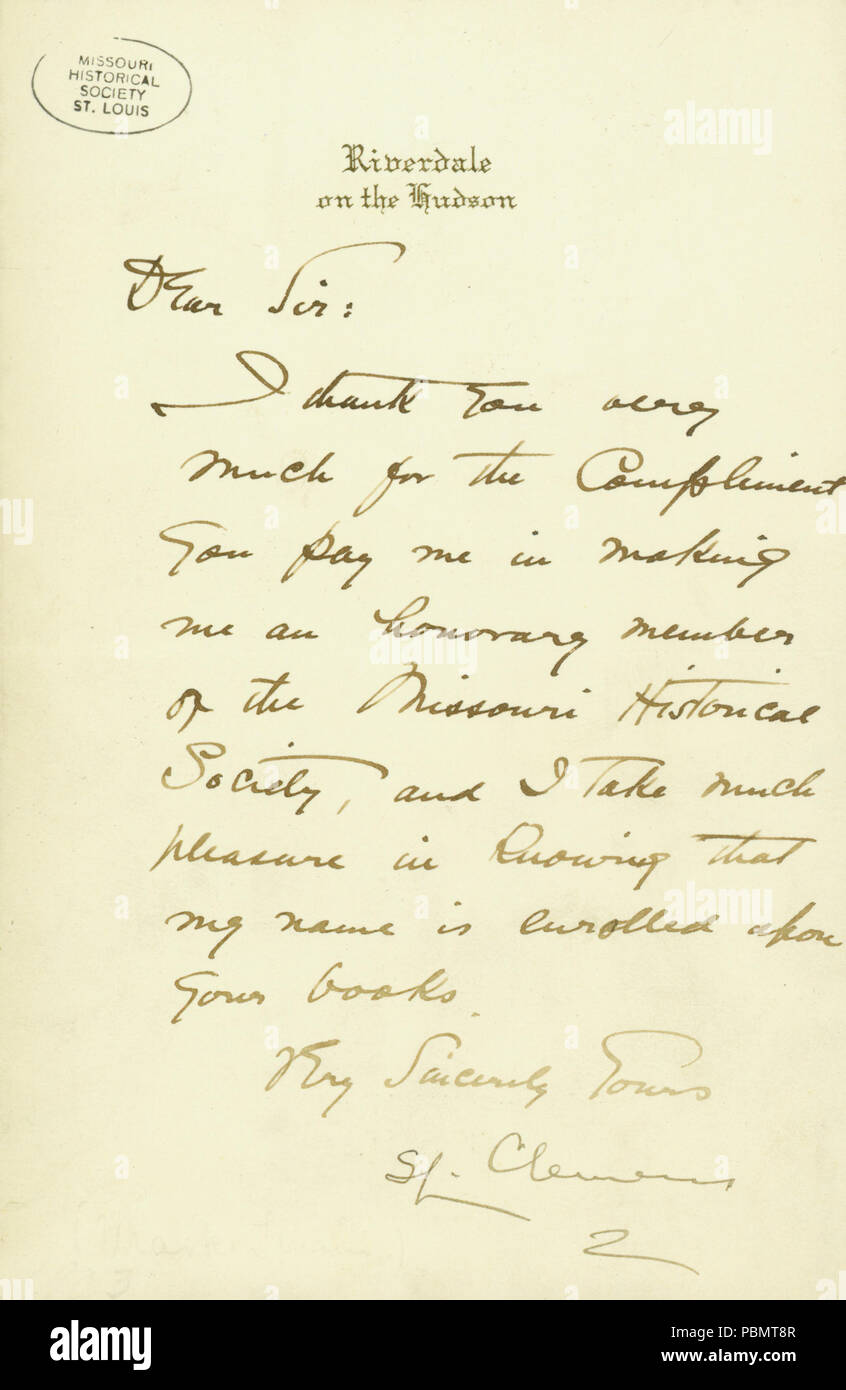 MISSOURI
HISTORICAL
SOCIETY
ST. LOUIS
alamy
Riverdale
on the Hudson
Dear Sir:
I thank you very
much for the Compliment
you pay me in making
me an honorary member
of the Missouri Historical
Society, and I take much
pleasure in knowing that
my name is enrolled upon
your books.
Very Sincerely Yours
SL. Clemens
alamy
Image ID: PBMT8R
www.alamy.com